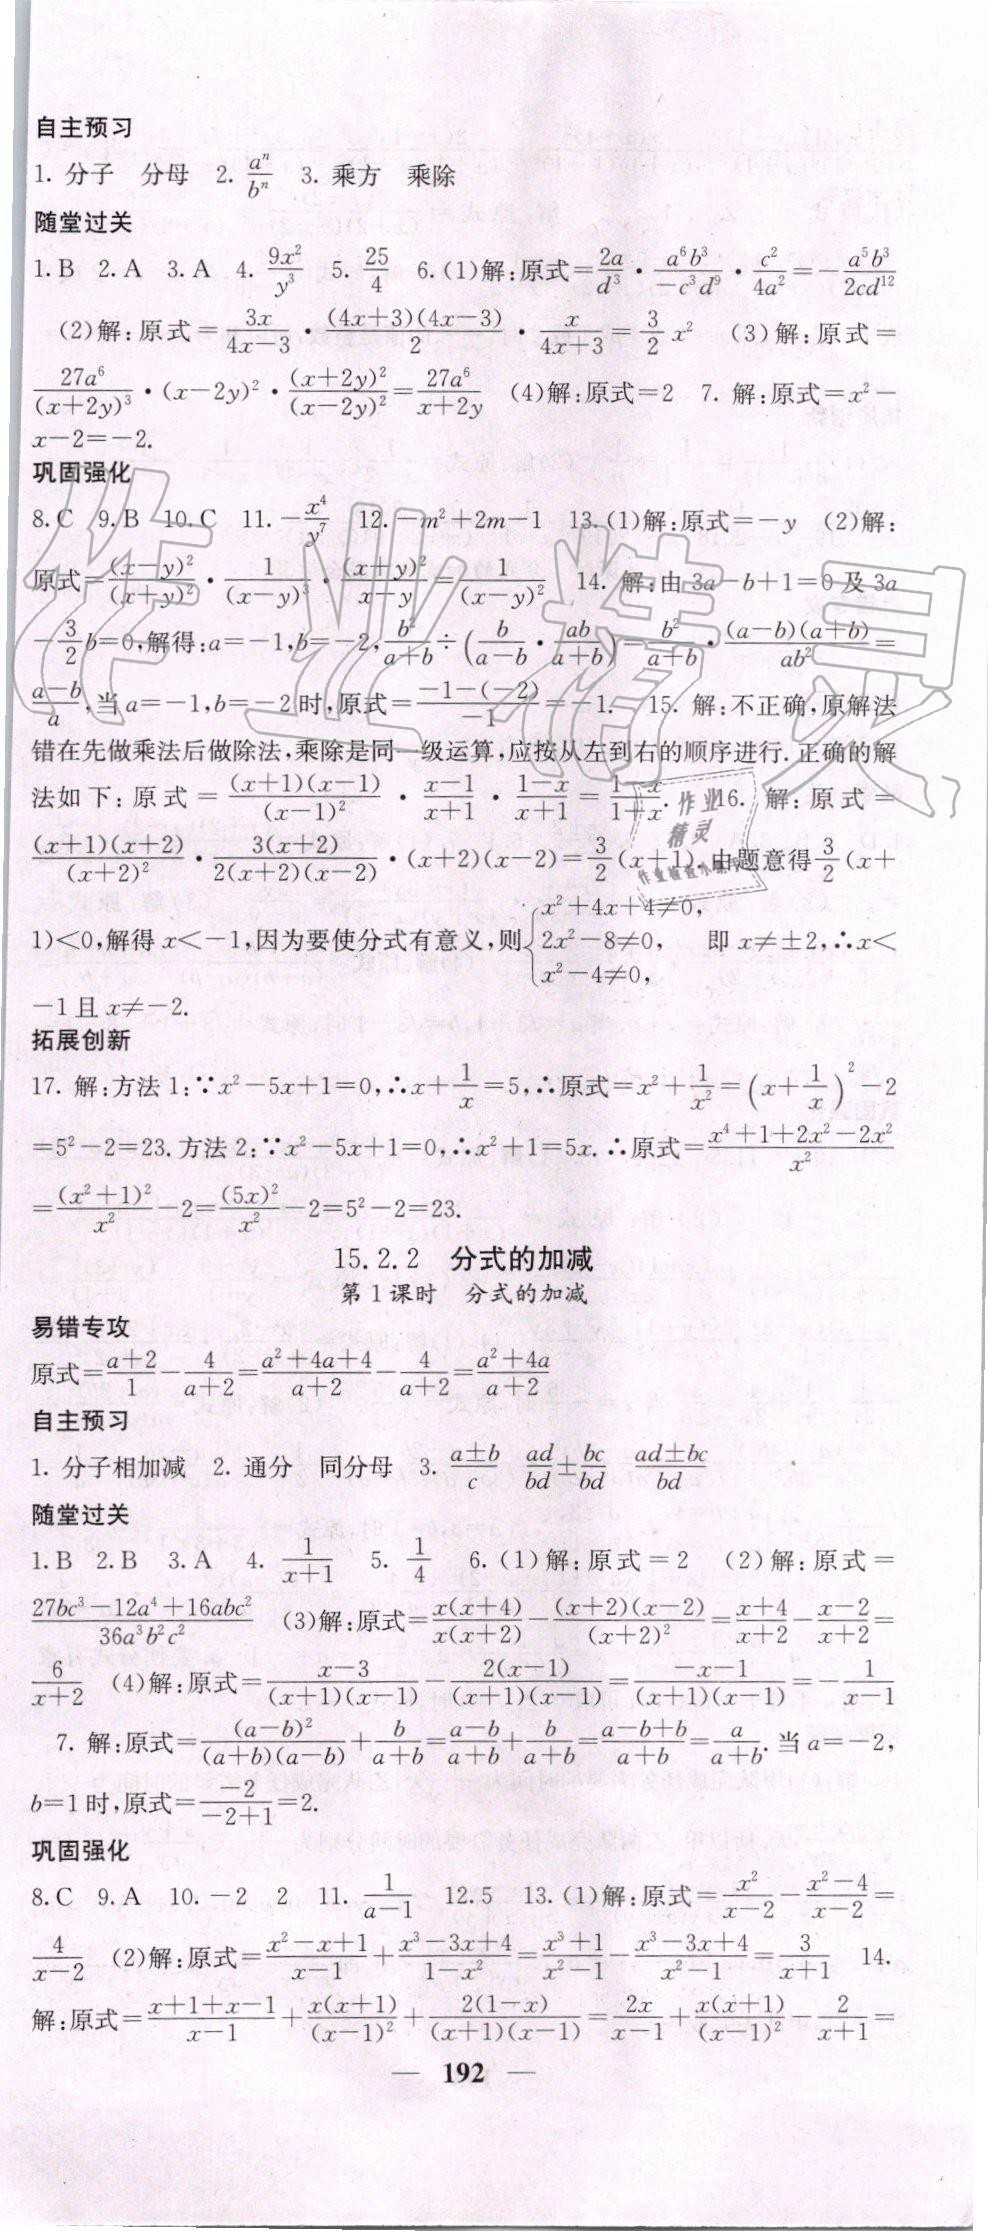 自主预习
1. 分子　分母　2. \frac{a^n}{b^n}　3. 乘方　乘除
随堂过关
1. B　2. A　3. A　4. \frac{9x^2}{y^3}　5. \frac{25}{4}　6. (1)解:原式=\frac{2a}{d^3}·\frac{a^6b^3}{-c^3d^9}·\frac{c^2}{4a^2}=-\frac{a^5b^3}{2cd^{12}}
(2)解:原式=\frac{3x}{4x-3}·\frac{(4x+3)(4x-3)}{2}·\frac{x}{4x+3}=\frac{3}{2}x^2　(3)解:原式=
\frac{27a^6}{(x+2y)^3}·(x-2y)^2·\frac{(x+2y)^2}{(x-2y)^2}=\frac{27a^6}{x+2y}　(4)解:原式=2　7. 解:原式=x^2-
x-2=-2.
巩固强化
8. C　9. B　10. C　11. -\frac{x^4}{y^7}　12. -m^2+2m-1　13. (1)解:原式=-y　(2)解:
原式=\frac{(x-y)^2}{(x+y)^2}·\frac{1}{(x-y)^3}·\frac{(x+y)^2}{x-y}=\frac{1}{(x-y)^2}　14. 解:由3a-b+1=0及3a
-\frac{3}{2}b=0,解得:a=-1,b=-2,\frac{b^2}{a+b}÷(\frac{b}{a-b}·\frac{ab}{a+b})=\frac{b^2}{a+b}·\frac{(a-b)(a+b)}{ab^2}=
\frac{a-b}{a},当a=-1,b=-2时,原式=\frac{-1-(-2)}{-1}=-1.　15. 解:不正确,原解法
错在先做乘法后做除法,乘除是同一级运算,应按从左到右的顺序进行.正确的解
法如下:原式=\frac{(x+1)(x-1)}{(x-1)^2}·\frac{x-1}{x+1}·\frac{1-x}{x+1}=\frac{1-x}{1+x}.　16. 解:原式=
\frac{(x+1)(x+2)}{(x+2)^2}·\frac{3(x+2)}{2(x+2)(x-2)}·(x+2)(x-2)=\frac{3}{2}(x+1),由题意得\frac{3}{2}(x+
1)<0,解得x<-1,因为要使分式有意义,则{x^2+4x+4≠0, 2x^2-8≠0, x^2-4≠0,　即x≠±2,∴x<
-1且x≠-2.
拓展创新
17. 解:方法1:∵x^2-5x+1=0,∴x+\frac{1}{x}=5,∴原式=x^2+\frac{1}{x^2}=(x+\frac{1}{x})^2-2
=5^2-2=23.方法2:∵x^2-5x+1=0,∴x^2+1=5x.∴原式=\frac{x^4+1+2x^2-2x^2}{x^2}
=\frac{(x^2+1)^2}{x^2}-2=\frac{(5x)^2}{x^2}-2=5^2-2=23.
15.2.2　分式的加减
第1课时　分式的加减
易错专攻
原式=\frac{a+2}{1}-\frac{4}{a+2}=\frac{a^2+4a+4}{a+2}-\frac{4}{a+2}=\frac{a^2+4a}{a+2}
自主预习
1. 分子相加减　2. 通分　同分母　3. \frac{a±b}{c}　\frac{ad}{bd}±\frac{bc}{bd}　\frac{ad±bc}{bd}
随堂过关
1. B　2. B　3. A　4. \frac{1}{x+1}　5. \frac{1}{4}　6. (1)解:原式=2　(2)解:原式=
\frac{27bc^3-12a^4+16abc^2}{36a^3b^2c^2}　(3)解:原式=\frac{x(x+4)}{x(x+2)}-\frac{(x+2)(x-2)}{(x+2)^2}=\frac{x+4}{x+2}-\frac{x-2}{x+2}=
\frac{6}{x+2}　(4)解:原式=\frac{x-3}{(x+1)(x-1)}-\frac{2(x-1)}{(x+1)(x-1)}=\frac{-x-1}{(x+1)(x-1)}=-\frac{1}{x-1}
7. 解:原式=\frac{(a-b)^2}{(a+b)(a-b)}+\frac{b}{a+b}=\frac{a-b}{a+b}+\frac{b}{a+b}=\frac{a-b+b}{a+b}=\frac{a}{a+b}.当a=-2,
b=1时,原式=\frac{-2}{-2+1}=2.
巩固强化
8. C　9. A　10. -2　2　11. \frac{1}{a-1}　12. 5　13. (1)解:原式=\frac{x^2}{x-2}-\frac{x^2-4}{x-2}=
\frac{4}{x-2}　(2)解:原式=\frac{x^2-x+1}{x-1}+\frac{x^3-3x+4}{1-x^2}=\frac{x^3+1}{x^2-1}-\frac{x^3-3x+4}{x^2-1}=\frac{3}{x+1}　14.
解:原式=\frac{x+1+x-1}{x-1}+\frac{x(x+1)}{(x-1)^2}+\frac{2(1-x)}{(x+1)(x-1)}=\frac{2x}{x-1}+\frac{x(x+1)}{(x-1)^2}-\frac{2}{x+1}=
— 192 —
作业精灵
作业
精灵